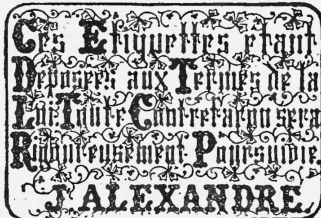 Ces Etiquettes étant
Déposées aux Termes de la
Loi Toute Contrefaçon sera
Rigoureusement Poursuivie.
J. ALEXANDRE.